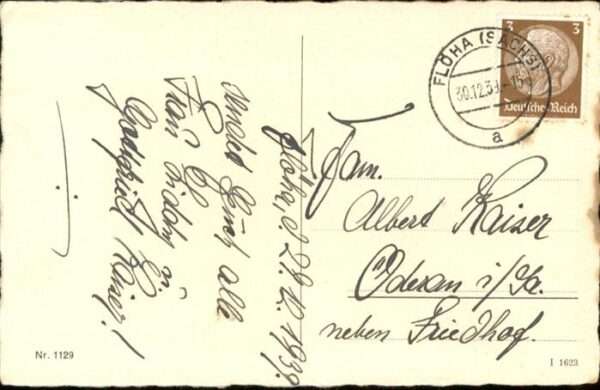 3 3
Deutsches Reich
FLÖHA (SACHS)
30.12.39.-15
a
Flöha, d. 29.12.1939.
Fam.
Albert Kaiser
Öderan i/Sa.
neben Friedhof.
Euch alle
Frau
u.
Gottfried Kaiser!
Nr. 1129
I 1623